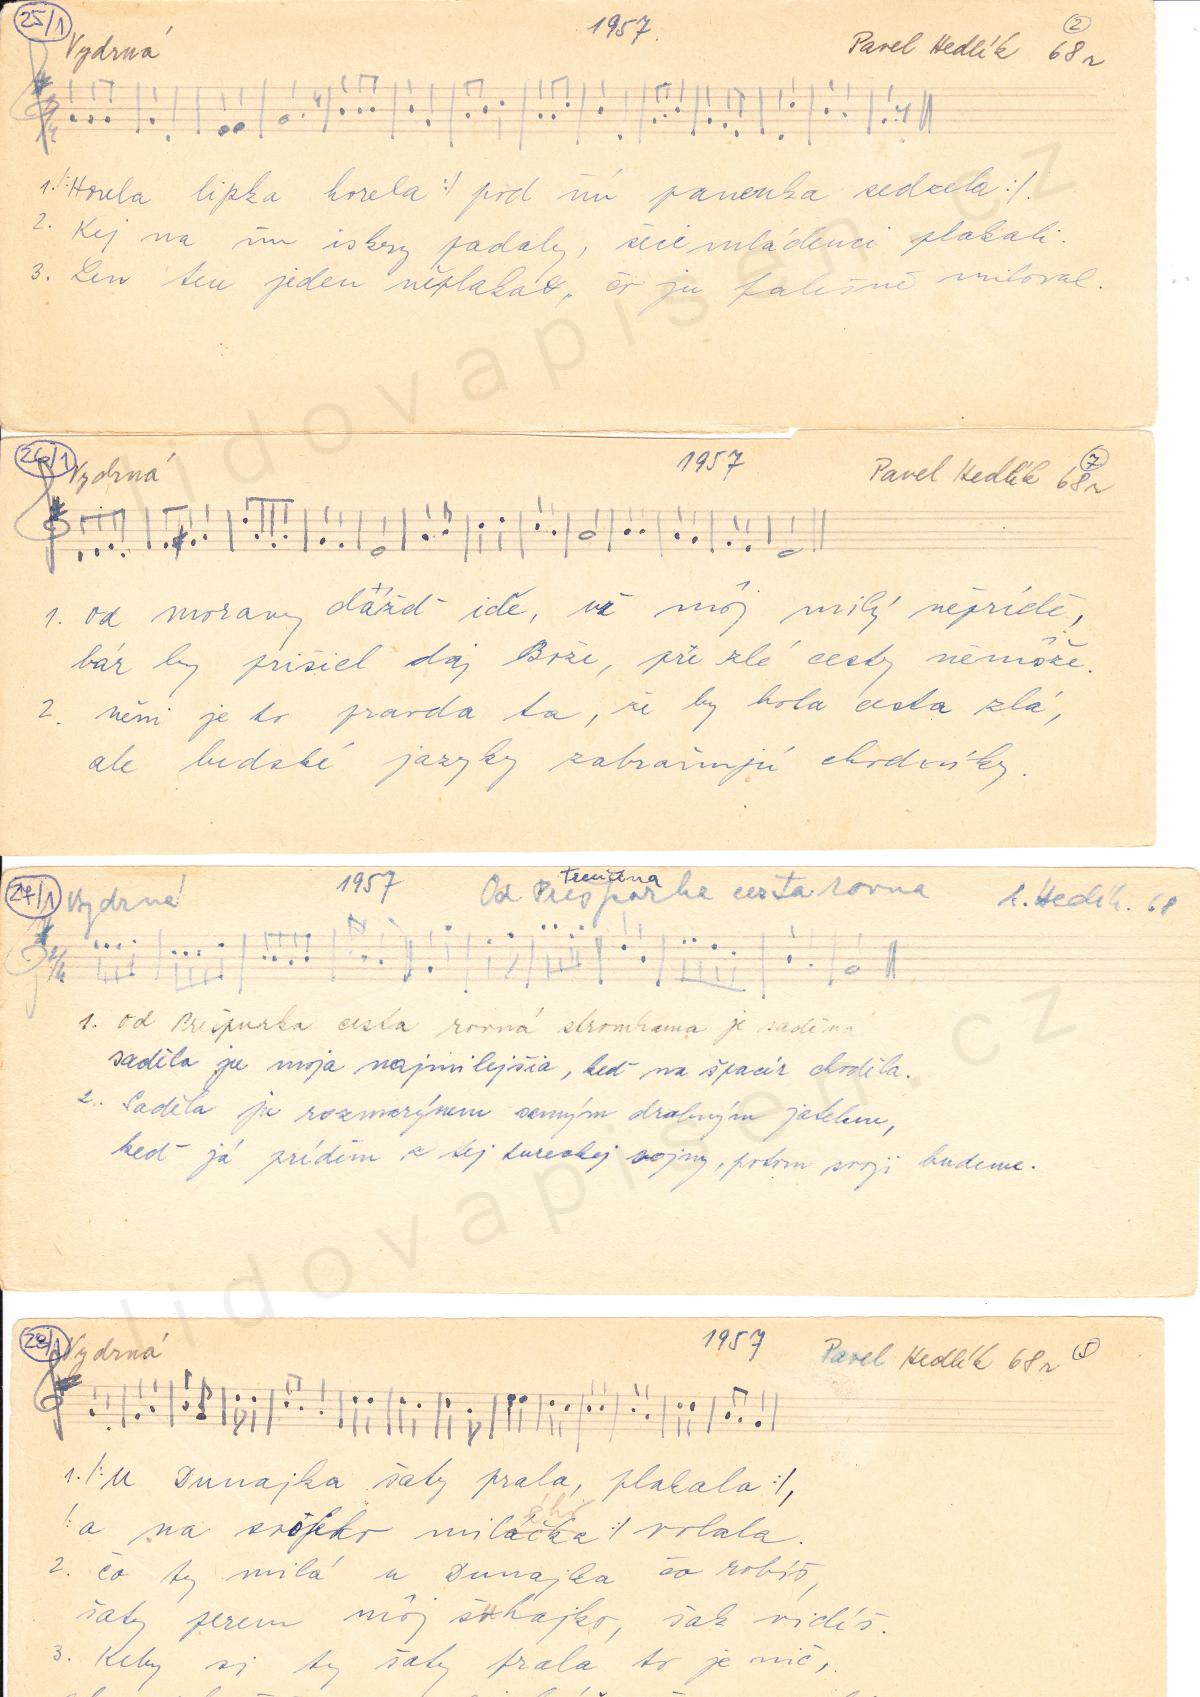 25/1
1957.
2
Vydrná
Pavel Hedlík 68 r
1. /: Horela lipka horela :/ pod ňú panenka sedzela :/.
2. Kej na ňu iskry padaly, šeci mládenci plakali.
3. Len ten jeden něplakal, čo ju falešně miloval.
26/1
1957
7
Vydrná
Pavel Hedlík 68 r
1. od moravy dážď idě, už môj milý něprídě,
bár by prišiel daj Bože, pře zlé cesty němôže.
2. něni je to pravda ta, že by bola cesta zlá,
ale ludské jazyky zabraňujú chodníky.
27/1
Vydrná
1957
trenčína
Od Prešporka cesta rovna
Hedlík. 68
1. od Prešpurka cesta rovná stromkama je saděná
saděla ju moja najmilejšia, keď na špacír choděla.
2. Saděla ju rozmarýnem černým drobným jatelem,
keď já príděm z tej tureckej vojny, potom svoji budeme.
28/1
Vydrná
1957
Pavel Hedlík 68 r
5
1. /: U Dunajka šaty prala, plakala :/,
/: a na svojho miláčka :/ volala.
2. čo ty milá u Dunajka čo robíš,
šaty perem môj šuhajko, šak vidíš.
3. Keby si ty šaty prala to je nič,